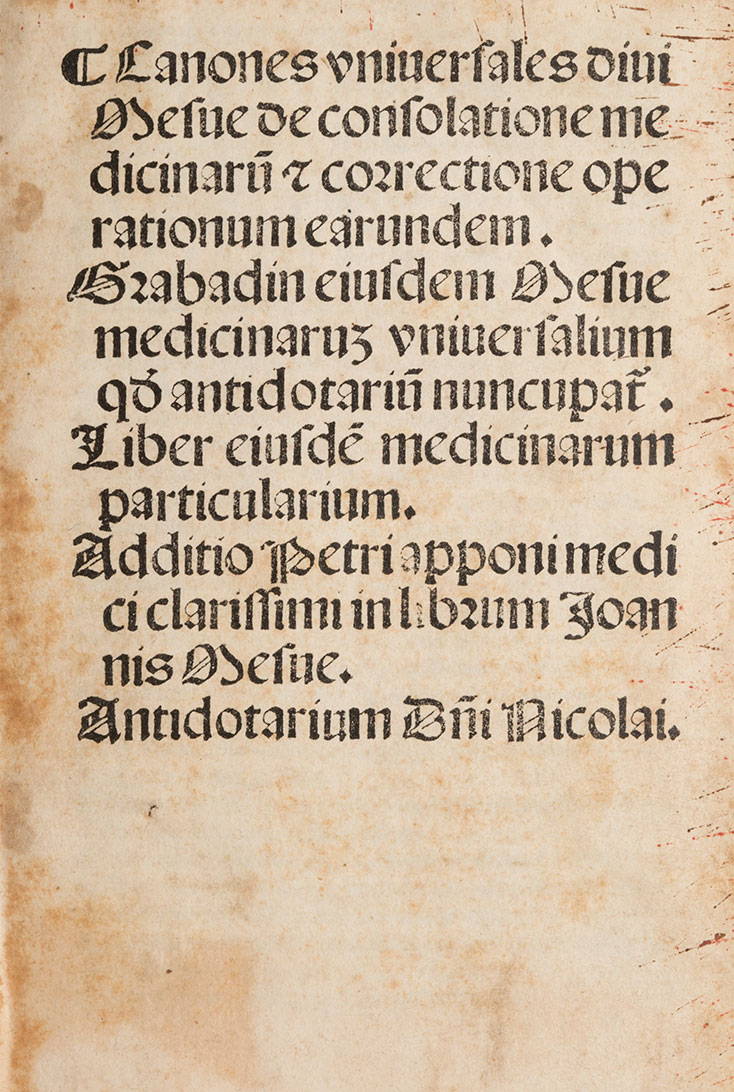 ¶ Canones vniuerſales diui
Meſue de conſolatione me
dicinarū ⁊ coꝛrectione ope
rationum earundem.
Gꝛabadin eiuſdem Meſue
medicinaruꝫ vniuerſalium
qđ antidotariū nuncupat᷑.
Liber eiuſdē medicinarum
particularium.
Additio Petri apponi medi
ci clariſſimi in libꝛum Joan
nis Meſue.
Antidotarium Dn̄i Nicolai.